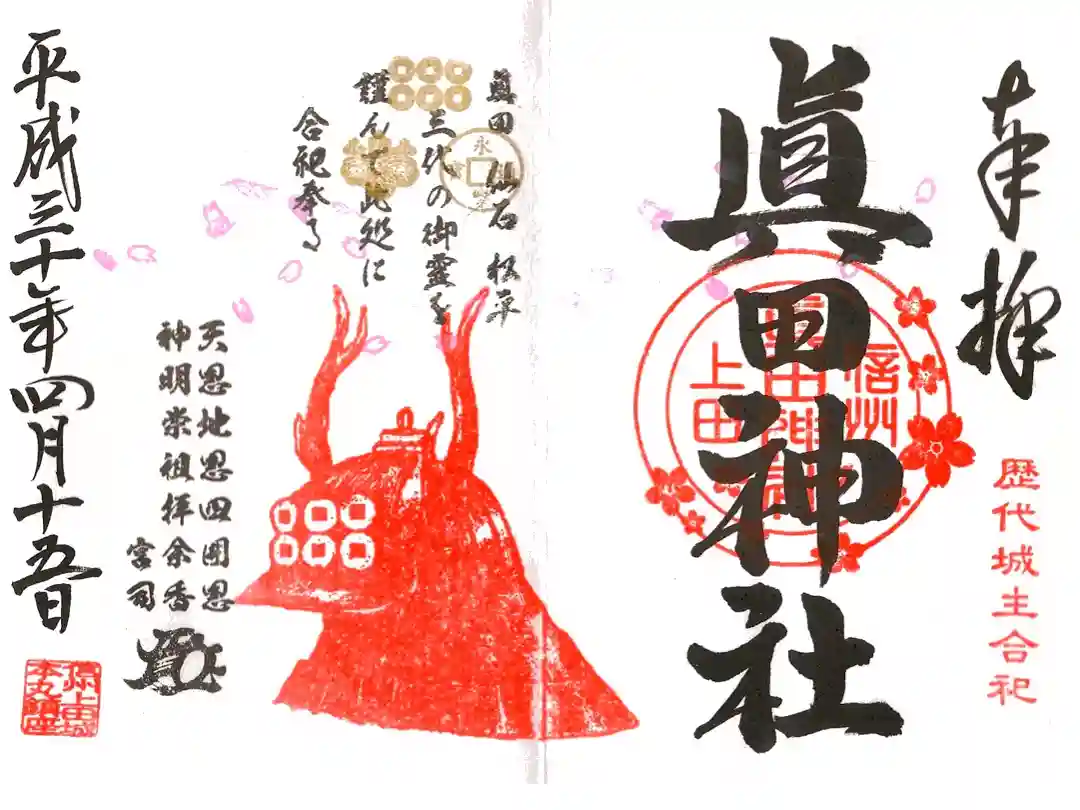 奉拝
歴代城主合祀
眞田神社
信州
上田
眞田 仙石 松平
三代の御霊を
謹んで此処に
合祀奉る
永
天恩地恩四圍恩
神明崇祖拝余香
宮司
平成三十年四月十五日
信州上田城
本丸鎮座